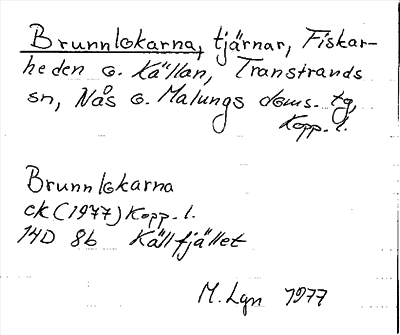 Brunnlokarna, tjärnar, Fiskar-
heden o. Källan, Transtrands
sn, Nås o. Malungs doms. tg,
Kopp. l.
Brunnlokarna
ck (1977) Kopp. l.
14D 8b Källfjället
M. Lyn 1977